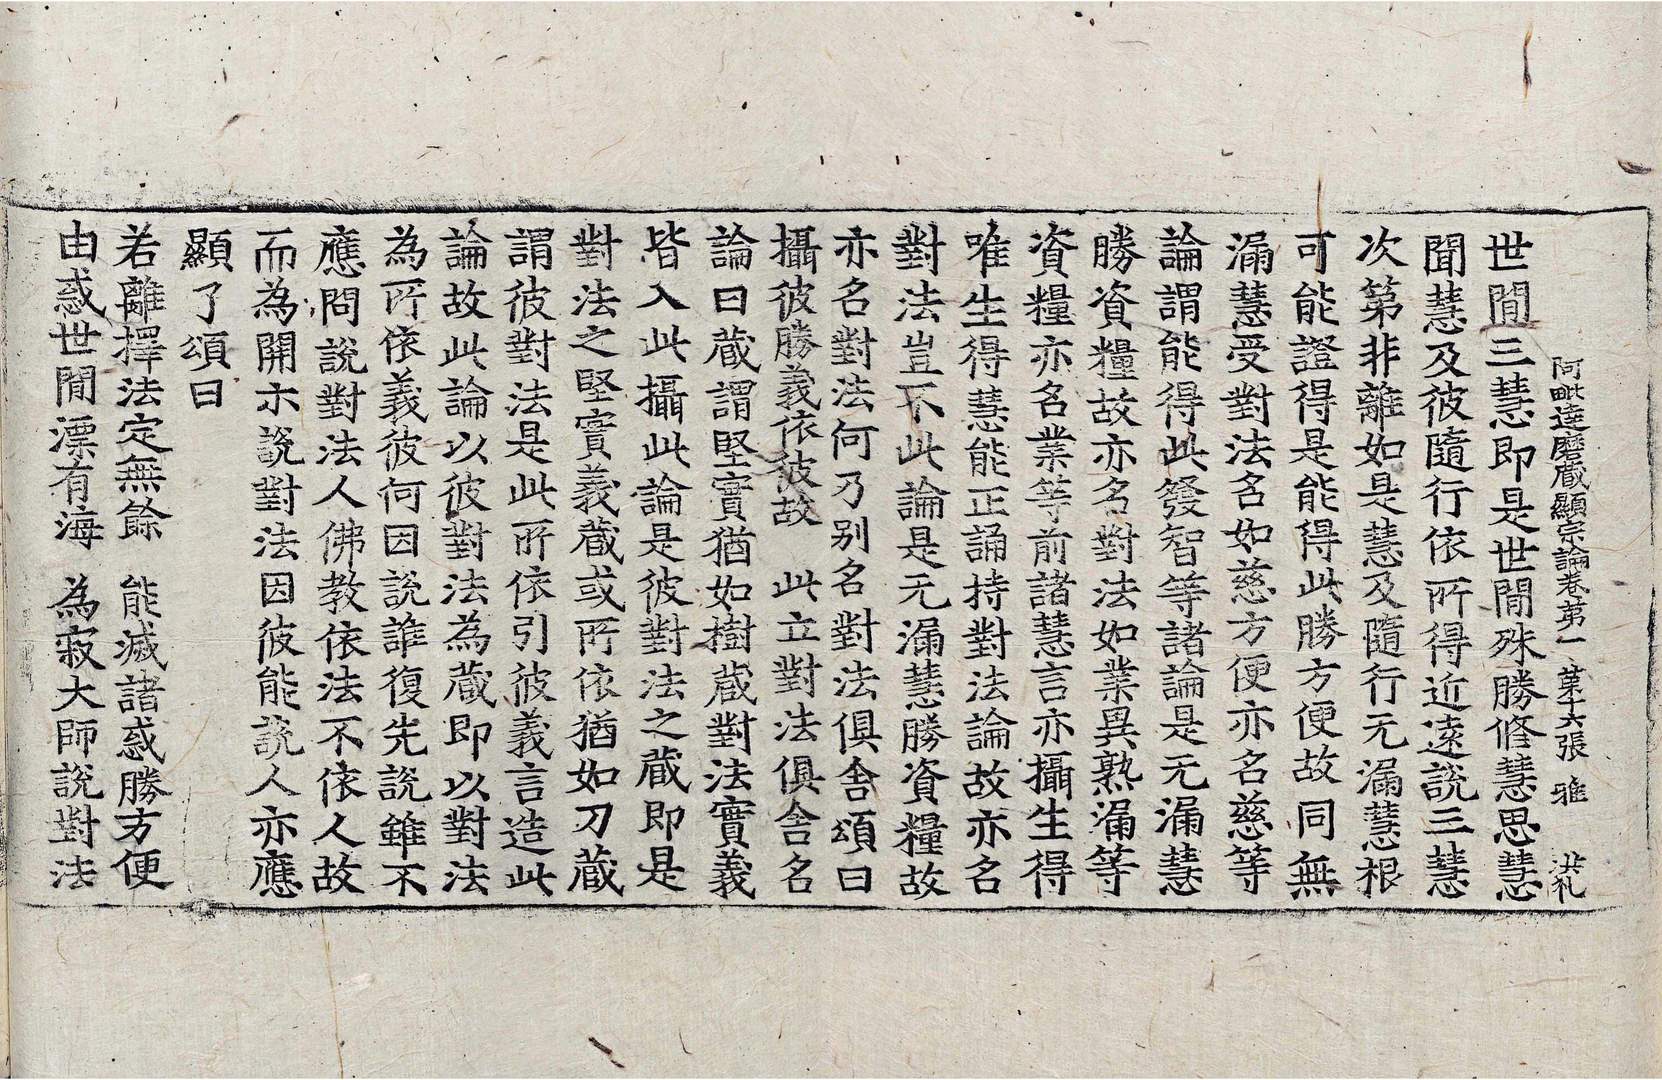 阿毗達磨蔵顯宗論卷第一 第十六張 雅 洪礼
世間三慧即是世間殊勝修慧思慧
聞慧及彼隨行依所得近遠說三慧
次第非離如是慧及隨行无漏慧根
可能證得是能得此勝方便故同無
漏慧受對法名如慈方便亦名慈等
論謂能得此發智等諸論是无漏慧
勝資糧故亦名對法如業異熟漏等
資糧亦名業等前諸慧言亦攝生得
唯生得慧能正誦持對法論故亦名
對法豈不此論是无漏慧勝資糧故
亦名對法何乃别名對法俱舍頌曰
攝彼勝義依彼故　此立對法俱舍名
論曰蔵謂堅實猶如樹蔵對法實義
皆入此攝此論是彼對法之蔵即是
對法之堅實義蔵或所依猶如刀蔵
謂彼對法是此所依引彼義言造此
論故此論以彼對法為蔵即以對法
為所依義彼何因說誰復先說雖不
應問說對法人佛教依法不依人故
而為開示說對法因彼能說人亦應
顯了頌曰
若離擇法定無餘　能滅諸惑勝方便
由惑世間漂有海　為寂大師說對法